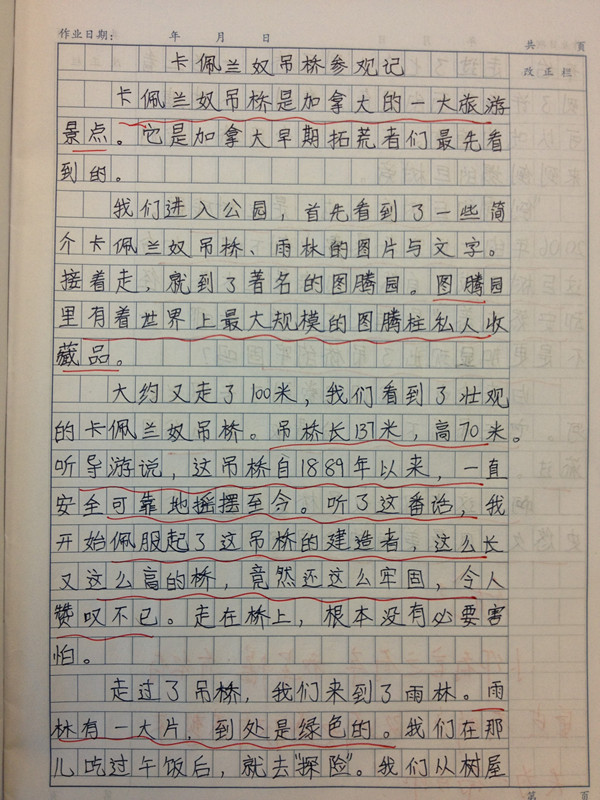 作业日期:　年　月　日
共　页
改正栏
卡佩兰奴吊桥参观记
卡佩兰奴吊桥是加拿大的一大旅游
景点。它是加拿大早期拓荒者们最先看
到的。
我们进入公园，首先看到了一些简
介卡佩兰奴吊桥、雨林的图片与文字。
接着走，就到了著名的图腾园。图腾园
里有着世界上最大规模的图腾柱私人收
藏品。
大约又走了100米，我们看到了壮观
的卡佩兰奴吊桥。吊桥长137米，高70米。
听导游说，这吊桥自1889年以来，一直
安全可靠地摇摆至今。听了这番话，我
开始佩服起了这吊桥的建造者，这么长
又这么高的桥，竟然还这么牢固，令人
赞叹不已。走在桥上，根本没有必要害
怕。
走过了吊桥，我们来到了雨林。雨
林有一大片，到处是绿色的。我们在那
儿吃过午饭后，就去“探险”。我们从树屋
第　页